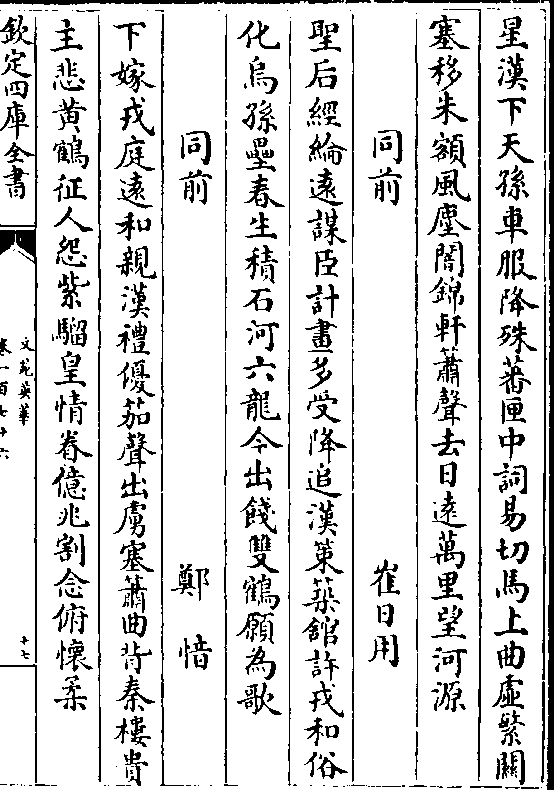 星漢下天孫車服降殊蕃匣中詞易切馬上曲虛繁關
塞移朱額風塵闇錦軒簫聲去日遠萬里望河源
同前　崔日用
聖后經綸遠謀臣計畫多受降追漢策築舘許戎和俗
化烏孫壘春生積石河六龍今出餞雙鶴願為歌
同前　鄭愔
下嫁戎庭遠和親漢禮優笳聲出虜塞簫曲背秦樓貴
主悲黃鶴征人怨紫騮皇情眷億兆割念俯懷柔
欽定四庫全書
文苑英華
卷一百七十六
十七